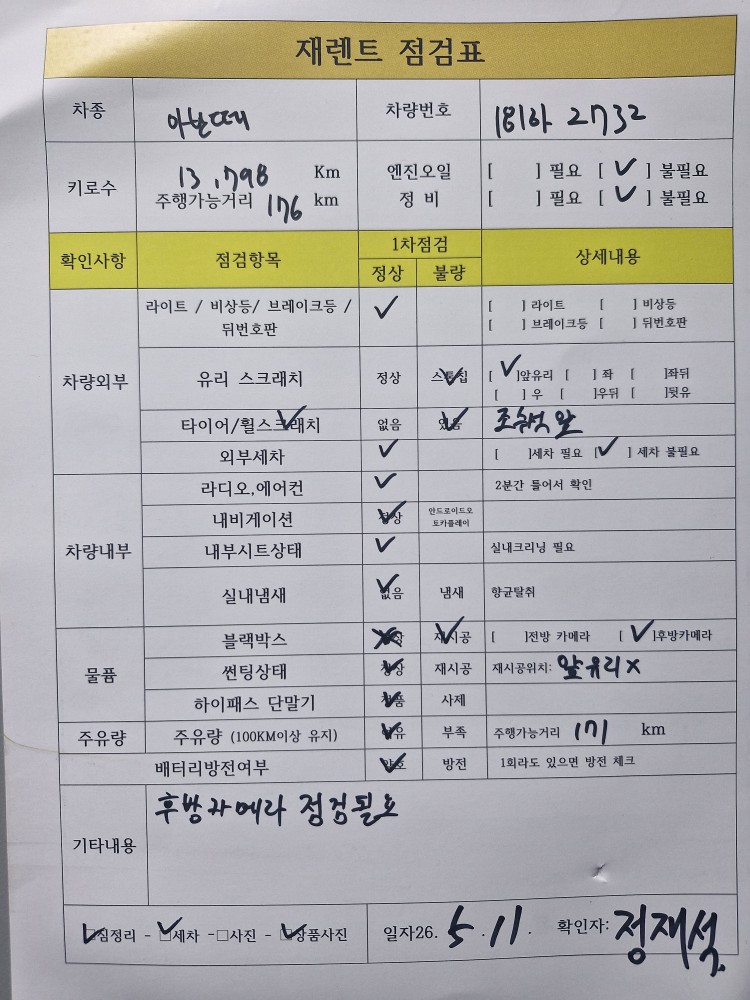 재렌트 점검표
차종 아반떼 차량번호 181하 2732
키로수 13,798 Km 엔진오일 [ ] 필요 [ ✓ ] 불필요
주행가능거리 176 km 정 비 [ ] 필요 [ ✓ ] 불필요
확인사항 점검항목 1차점검 상세내용
정상 불량
차량외부 라이트 / 비상등/ 브레이크등 / 뒤번호판 ✓ [ ] 라이트 [ ] 비상등
[ ] 브레이크등 [ ] 뒤번호판
유리 스크래치 정상 스톤칩 ✓ [ ✓ ]앞유리 [ ] 좌 [ ]좌뒤
[ ] 우 [ ]우뒤 [ ]뒷유
타이어/휠스크래치 ✓ 없음 있음 ✓ 조수석 앞
외부세차 ✓ [ ]세차 필요 [ ✓ ] 세차 불필요
차량내부 라디오,에어컨 ✓ 2분간 틀어서 확인
내비게이션 정상 ✓ 안드로이드오토카플레이
내부시트상태 ✓ 실내크리닝 필요
실내냄새 없음 ✓ 냄새 향균탈취
물품 블랙박스 재시공 ✓ [ ]전방 카메라 [ ✓ ]후방카메라
썬팅상태 정상 ✓ 재시공 재시공위치: 앞유리 x
하이패스 단말기 ✓ 사제
주유량 주유량 (100KM이상 유지) ✓ 부족 주행가능거리 171 km
배터리방전여부 양호 ✓ 방전 1회라도 있으면 방전 체크
기타내용 후방카메라 점검필요
✓ 짐정리 - ✓ 세차 - □사진 - ✓ 상품사진 일자26. 5 . 11 . 확인자: 정재석